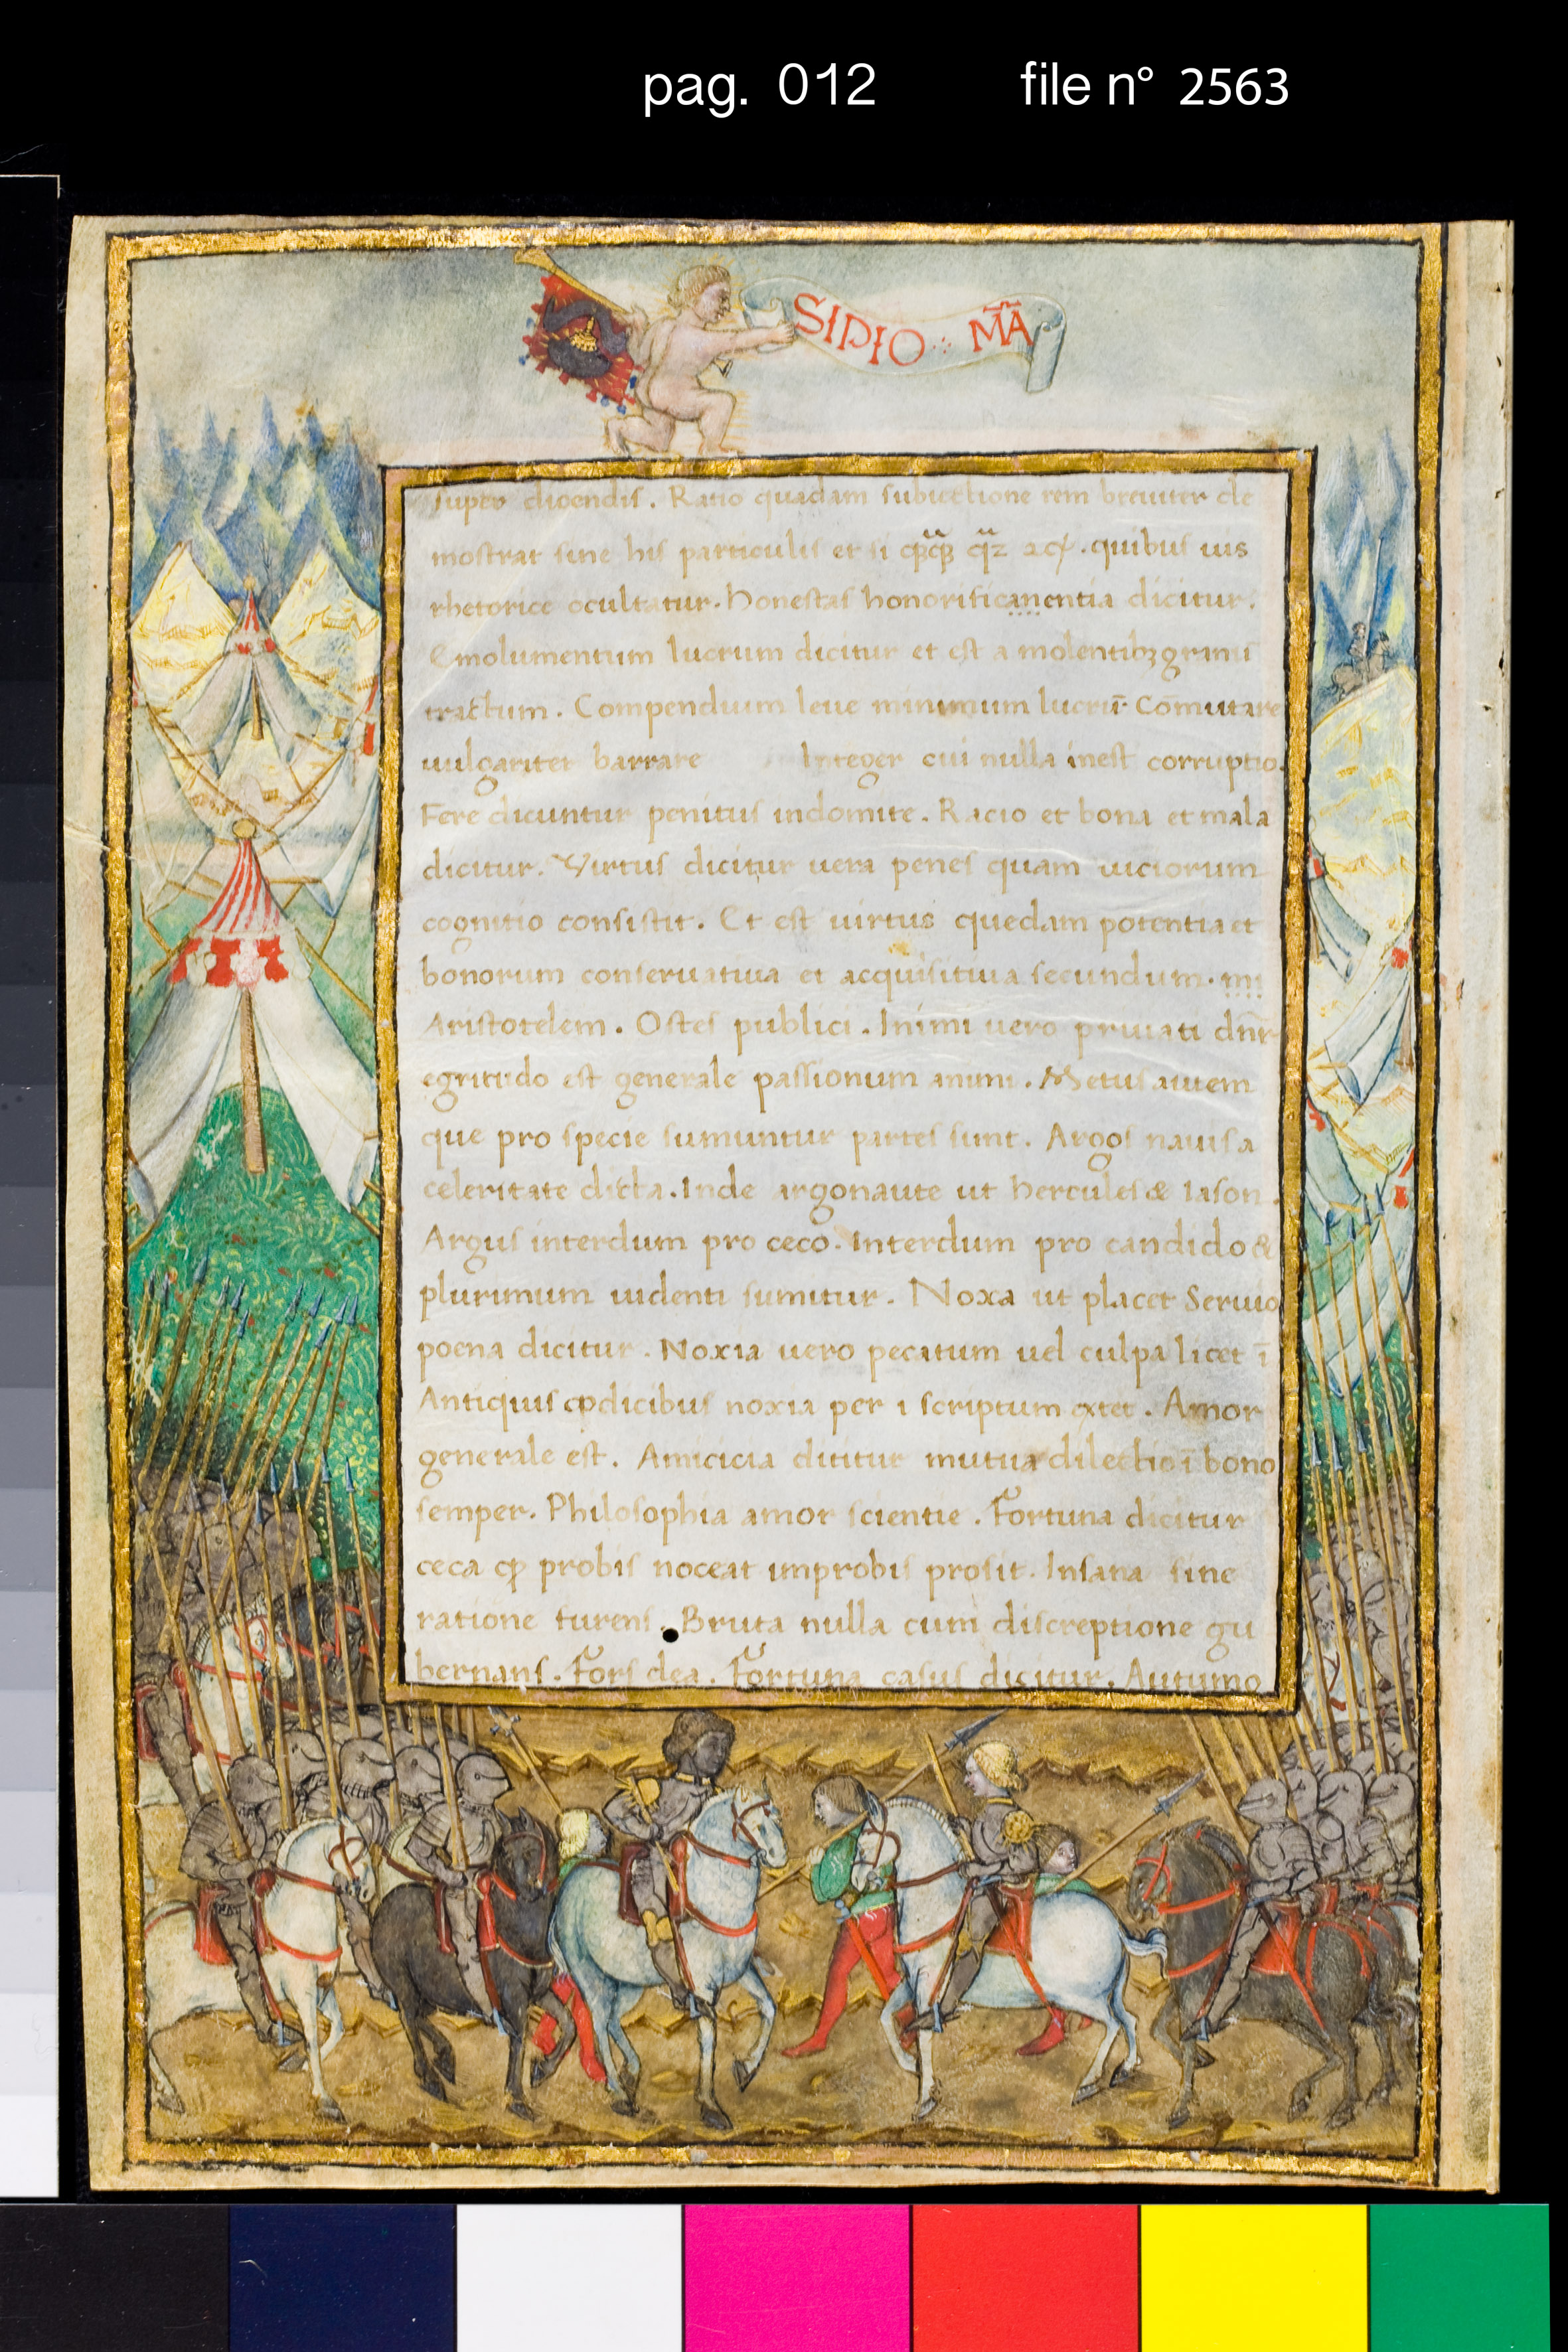 pag. 012 file n° 2563
SIPIO M̃Ã
super dicendis. Racio quadam subiectione rem breuiter de
mostrat sine his particulis et si quibus uis
rhetorice ocultatur. honestas honorificanentia dicitur.
Emolumentum lucrum dicitur et est a molentibꝫ granis
tractum. Compendium leue minimum lucrū Cōmutare
uulgariter barrare Integer cui nulla inest corruptio.
Fere dicuntur penitus indomite. Racio et bona et mala
dicitur. Virtus dicitur uera penes quam uiciorum
cognitio consistit. Et est uirtus quedam potentia et
bonorum conseruatiua et acquisitiua secundum. mi
Aristotelem. Ostes publici. Inimi uero priuati dnr̄
egritudo est generale passionum animi. Metus autem
que pro specie sumuntur partes sunt. Argos nauis a
celeritate dicta. Inde argonaute ut hercules & Iason.
Argus interdum pro ceco. Interdum pro candido &
plurimum uidenti sumitur. Noxa ut placet Seruio
poena dicitur. Noxia uero pecatum uel culpa licet ī
Antiquis codicibus noxia per i scriptum extet. Amor
generale est. Amicicia dicitur mutua dilectio ī bono
semper. Philosophia amor scientie. Fortuna dicitur
ceca ꝙ probis noceat improbis prosit. Insana sine
ratione furens. Bruta nulla cum discreptione gu
bernans. Fors dea. Fortuna casus dicitur. Autumo